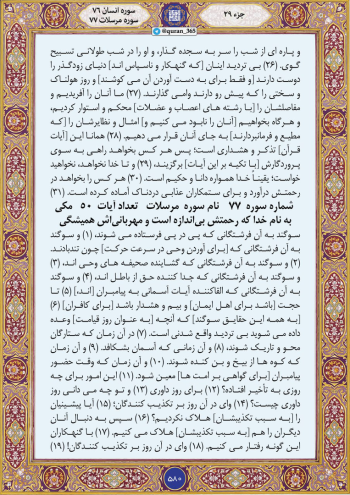 جزء ۲۹
سوره انسان ۷۶
سوره مرسلات ۷۷
@quran_365
و پاره ای از شب را سر به سجده گذار، و او را در شب طولانی تسبیح
گوی. (۲۶) بی تردید اینان [که گنهکار و ناسپاس اند] دنیای زودگذر را
دوست دارند [و فقط برای به دست آوردن آن می کوشند] و روز هولناک
و سختی را که پیش رو دارند وامی گذارند. (۲۷) ما آنان را آفریدیم و
مفاصلشان را [با رشته های اعصاب و عضلات] محکم و استوار کردیم،
و هرگاه بخواهیم [آنان را نابود می کنیم و] امثال و نظایرشان را [که
مطیع و فرمانبردارند] به جای آنان قرار می دهیم. (۲۸) همانا این [آیات
قرآن] تذکر و هشداری است؛ پس هر کس بخواهد راهی به سوی
پروردگارش [با تکیه بر این آیات] برگزیند، (۲۹) و تا خدا نخواهد، نخواهید
خواست؛ یقیناً خدا همواره دانا و حکیم است. (۳۰) هر کس را بخواهد در
رحمتش درآورد و برای ستمکاران عذابی دردناک آماده کرده است. (۳۱)
شماره سوره ۷۷ نام سوره مرسلات تعداد آیات ۵۰ مکی
به نام خدا که رحمتش بی‌اندازه است و مهربانی‌اش همیشگی
سوگند به آن فرشتگانی که پی در پی فرستاده می شوند، (۱) و سوگند
به آن فرشتگانی که [برای آوردن وحی در سرعت حرکت] چون تندبادند.
(۲) و سوگند به آن فرشتگانی که گشاینده صحیفه های وحی اند، (۳)
و سوگند به آن فرشتگانی که جدا کننده حق از باطل اند، (۴) و سوگند
به آن فرشتگانی که القاکننده آیات آسمانی به پیامبران [اند]، (۵) تا
حجت [باشد برای اهل ایمان] و بیم و هشدار باشد [برای کافران] (۶)
[به همه این حقایق سوگند] که آنچه [به عنوان روز قیامت] وعده
داده می شوید بی تردید واقع شدنی است. (۷) در آن زمان که ستارگان
محو و تاریک شوند، (۸) و آن زمانی که آسمان بشکافد. (۹) و آن زمان
که کوه ها از بیخ و بن کنده شوند. (۱۰) و آن زمان که وقت حضور
پیامبران [برای گواهی بر امت ها] معین شود. (۱۱) این امور برای چه
روزی به تأخیر افتاده؟ (۱۲) برای روز داوری (۱۳) و تو چه می دانی روز
داوری چیست؟ (۱۴) وای در آن روز بر تکذیب کنندگان! (۱۵) آیا پیشینیان
را [به سبب تکذیبشان] هلاک نکردیم؟ (۱۶) سپس به دنبال آنان
دیگران را هم [به سبب تکذیبشان] هلاک می کنیم. (۱۷) با گنهکاران
این گونه رفتار می کنیم. (۱۸) وای در آن روز بر تکذیب کنندگان! (۱۹)
۵۸۰